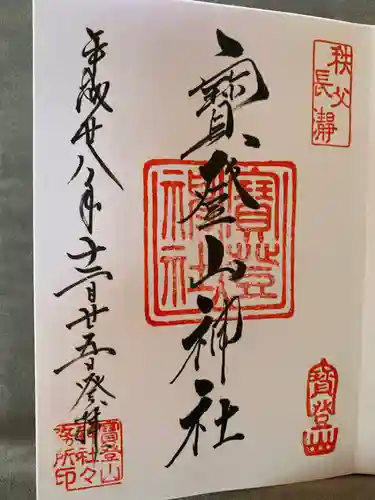 秩父
長瀞
寳登山神社
寳登山神社
寳登山
平成廿八年十二月廿五日癸拝
寳登山
神社々
務所印